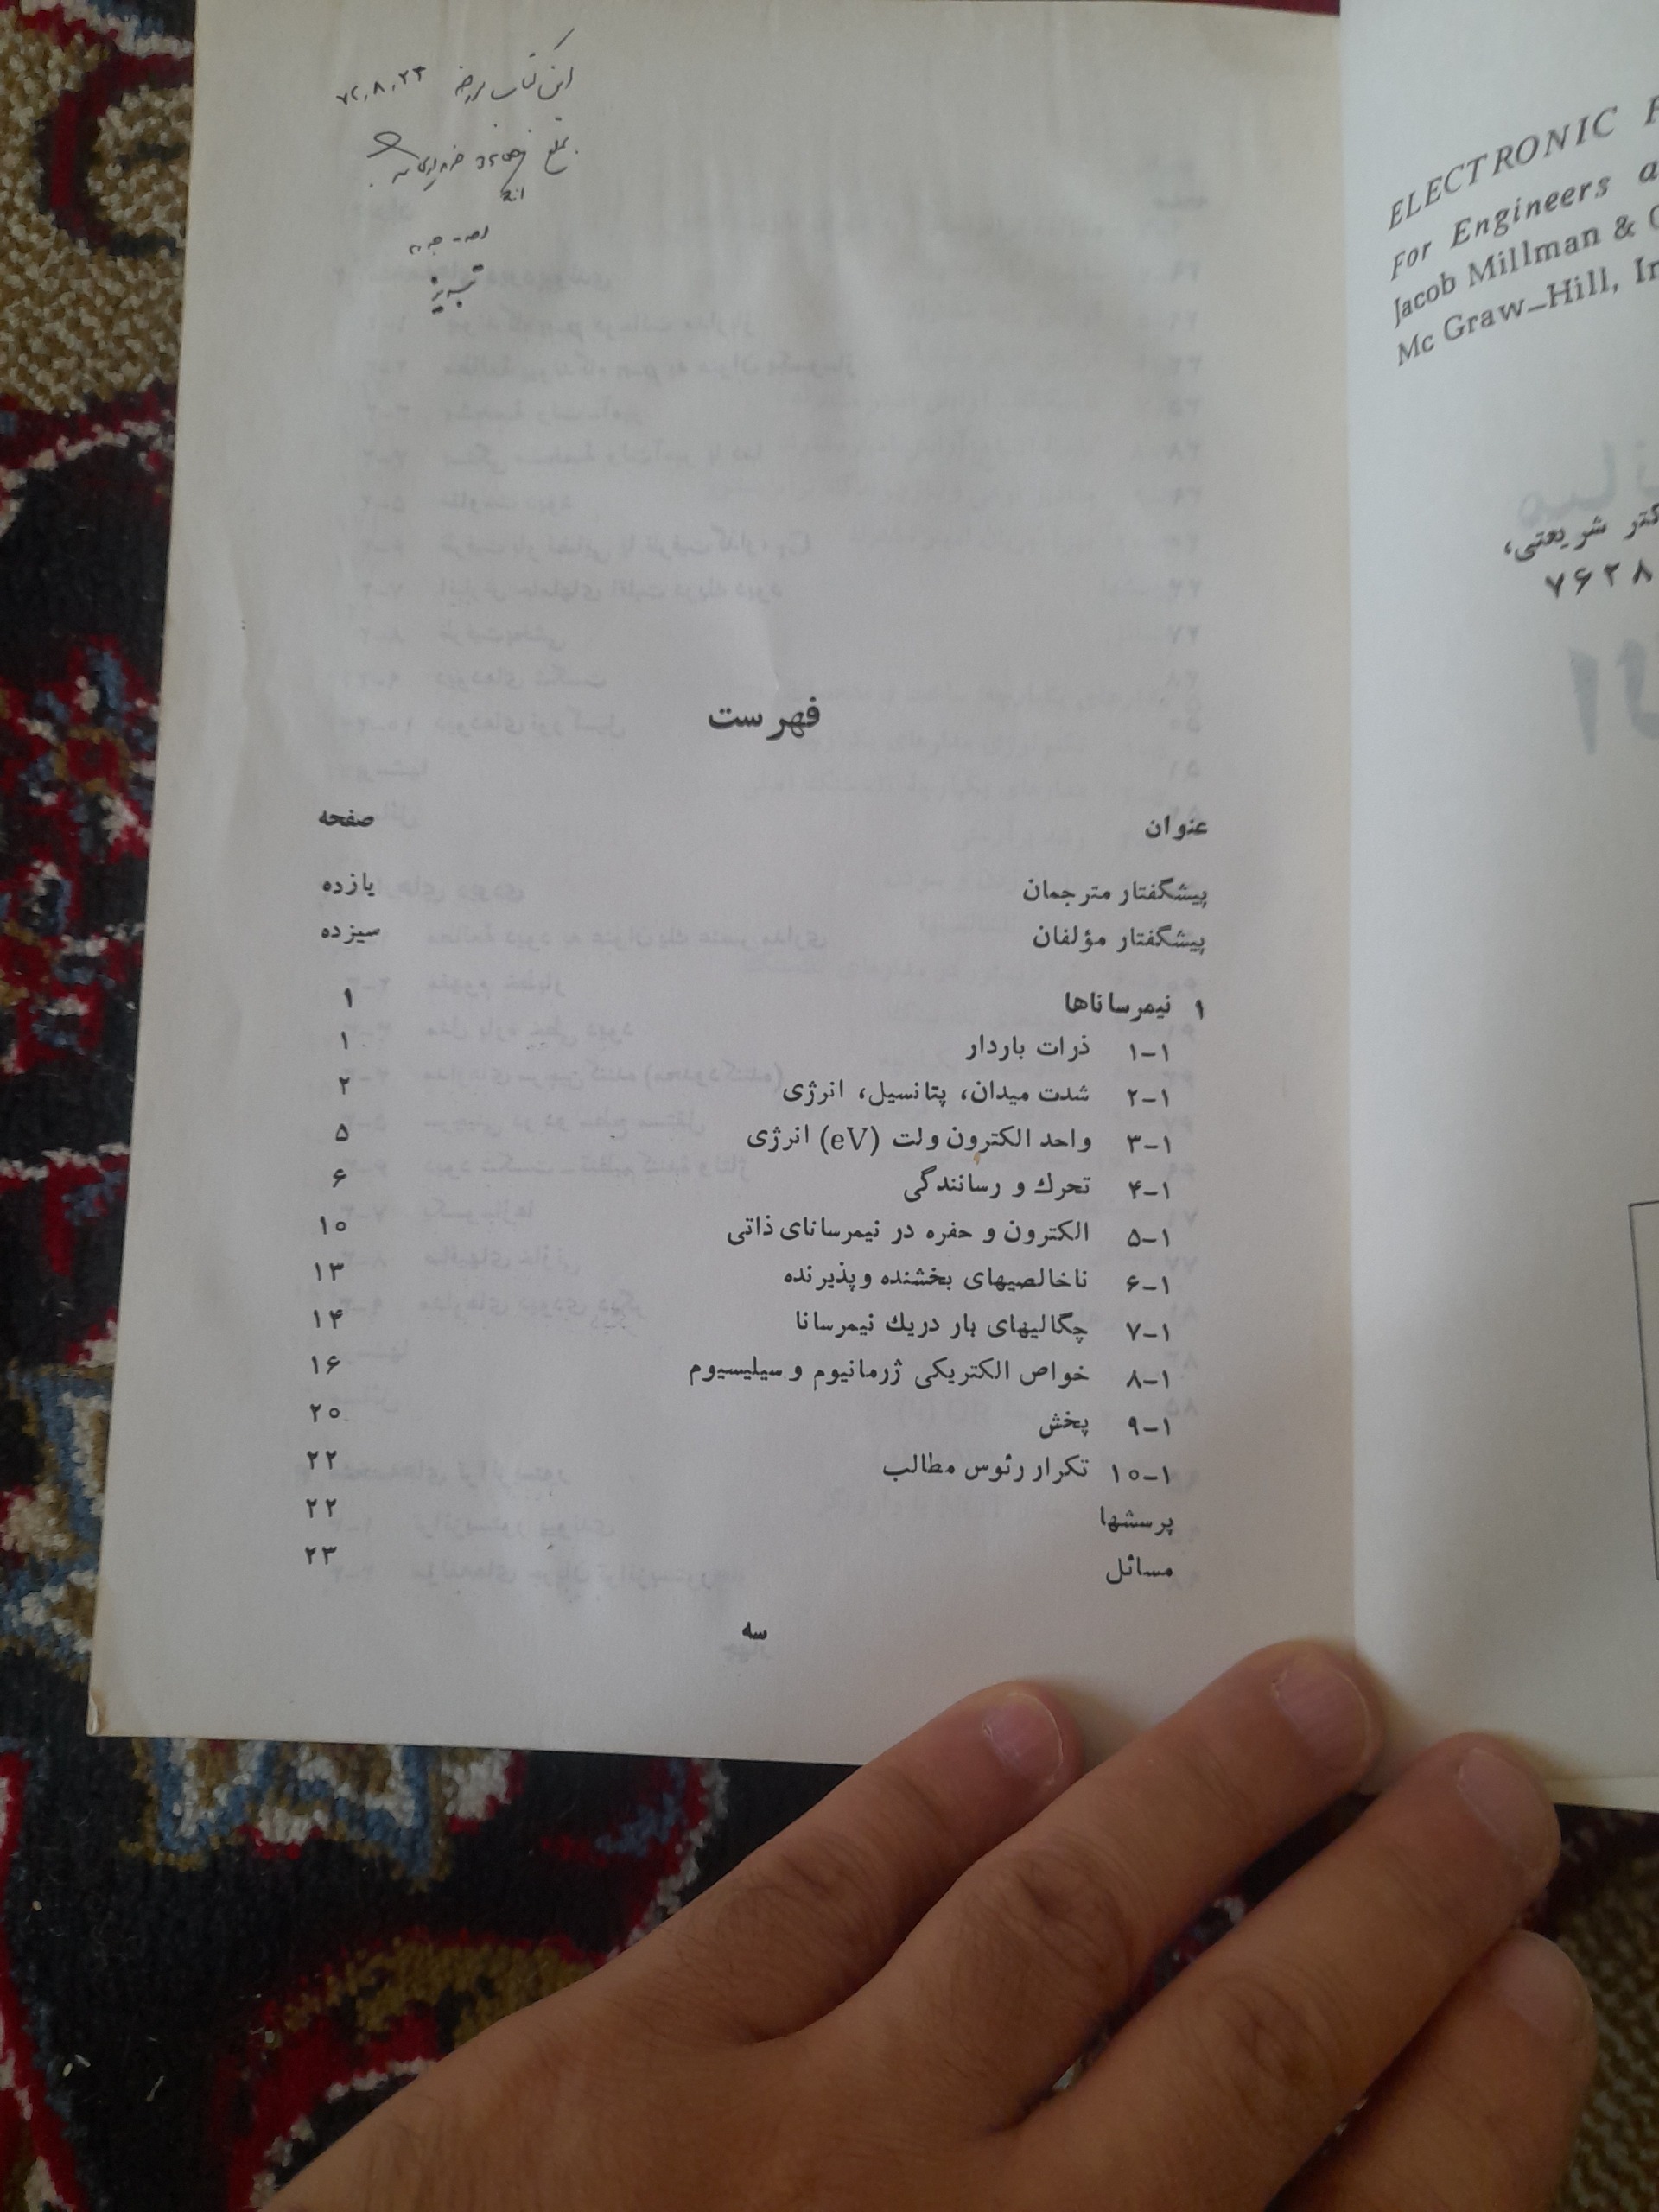 این کتاب مورخه ۷۲,۸,۲۳
بمبلغ
تبریز
فهرست
عنوان صفحه
پیشگفتار مترجمان یازده
پیشگفتار مؤلفان سیزده
۱ نیمرساناها ۱
۱-۱ ذرات باردار ۱
۲-۱ شدت میدان، پتانسیل، انرژی ۲
۳-۱ واحد الکترون ولت (eV) انرژی ۵
۴-۱ تحرك و رسانندگی ۶
۵-۱ الکترون و حفره در نیمرسانای ذاتی ۱۰
۶-۱ ناخالصیهای بخشنده و پذیرنده ۱۳
۷-۱ چگالیهای بار در یك نیمرسانا ۱۴
۸-۱ خواص الکتریکی ژرمانیوم و سیلیسیوم ۱۶
۹-۱ پخش ۲۰
۱۰-۱ تکرار رئوس مطالب ۲۲
پرسشها ۲۲
مسائل ۲۳
سه
ELECTRONIC
For Engineers
Jacob Millman &
Mc Graw-Hill,
شریعتی،
۷۶۲۸